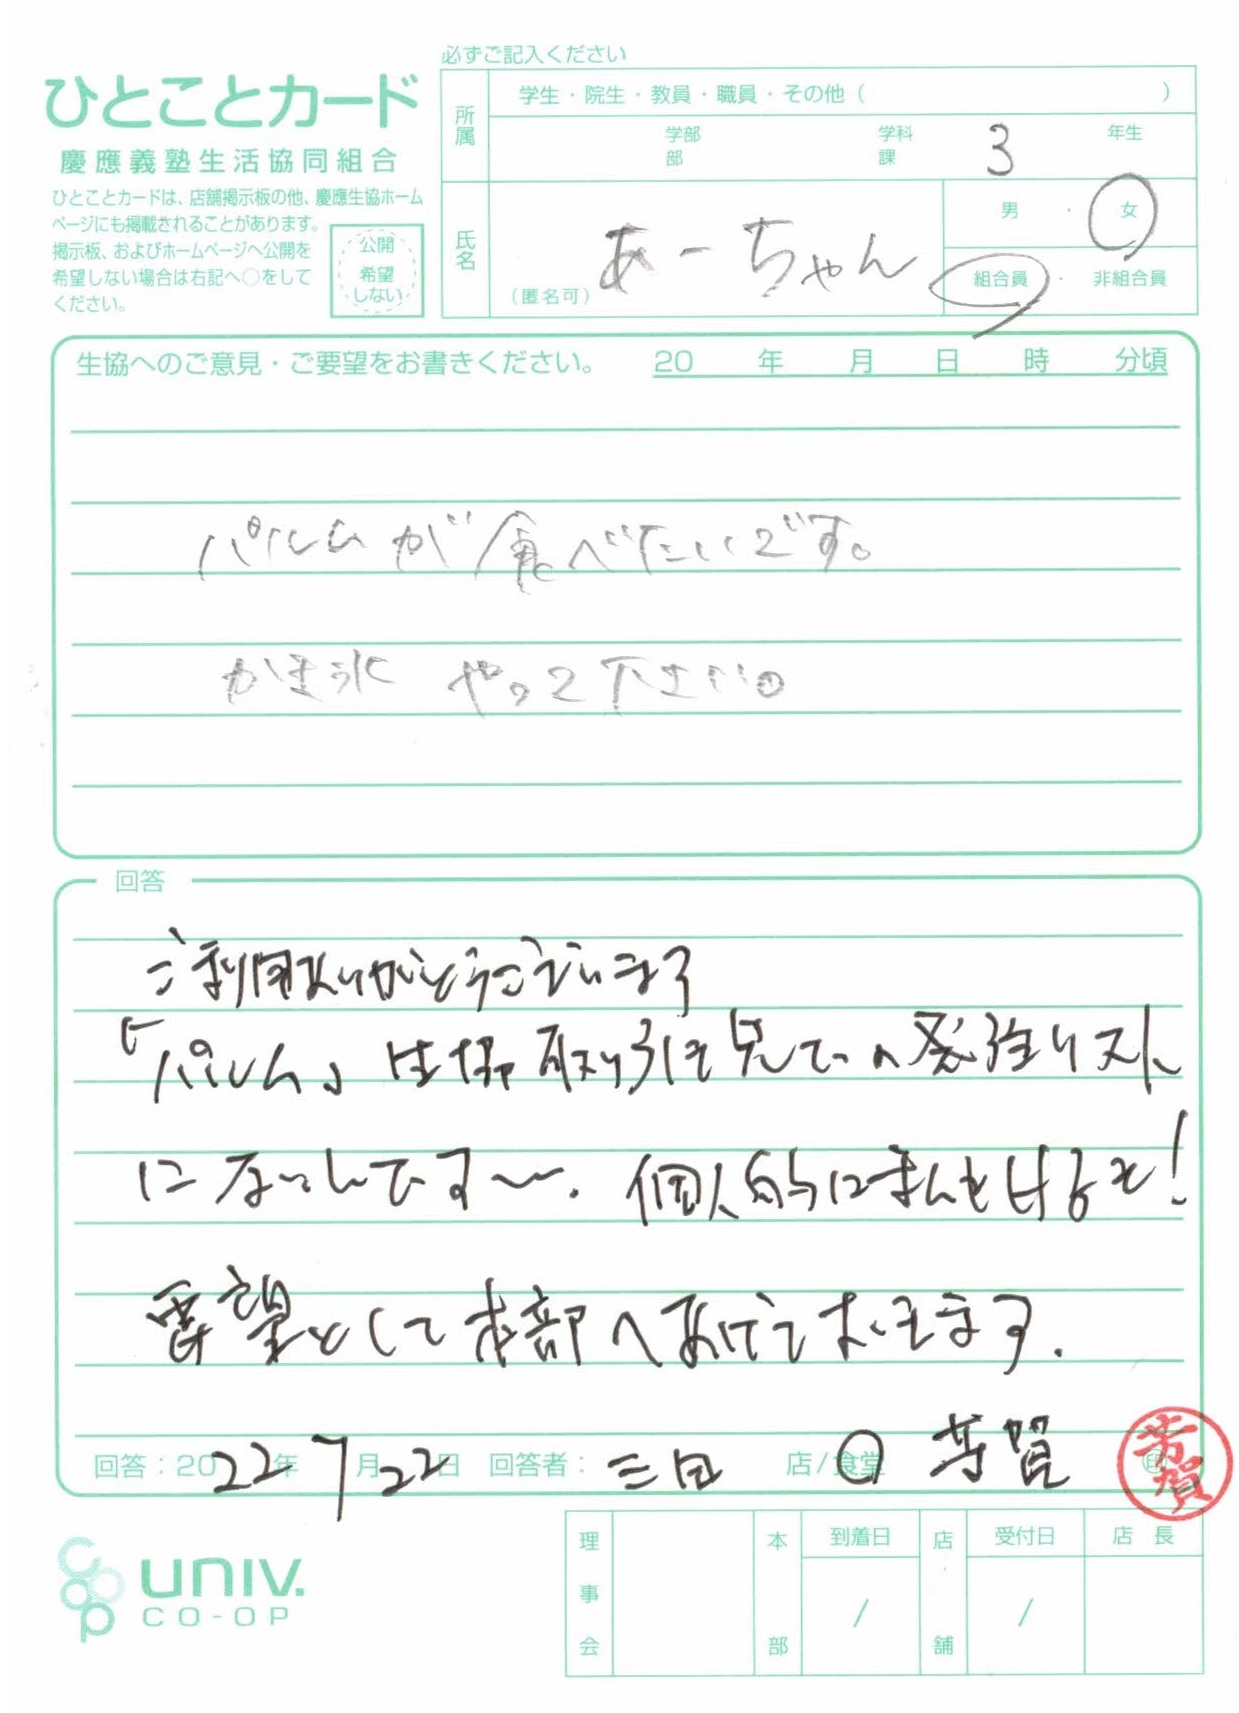 必ずご記入ください
ひとことカード
慶應義塾生活協同組合
ひとことカードは、店舗掲示板の他、慶應生協ホーム
ページにも掲載されることがあります。
掲示板、およびホームページへ公開を
希望しない場合は右記へ○をして
ください。
公開
希望
しない
所属
学生・院生・教員・職員・その他（ ）
学部 学科 3 年生
部 課
氏名
（匿名可）
あーちゃん
男 ・ 女
組合員 ・ 非組合員
生協へのご意見・ご要望をお書きください。 20 年 月 日 時 分頃
パルムが食べたいです。
かき氷 やって下さい。
回答
ご利用ありがとうございます
「パルム」生協取引き 発注リスト
にないんです〜. 個人的に !
要望として本部へあげておきます.
回答：2022年7月22日 回答者： 三田 店/食堂 芳賀
芳賀
印
univ.
CO-OP
理事会
本部
到着日
/
店舗
受付日
/
店長